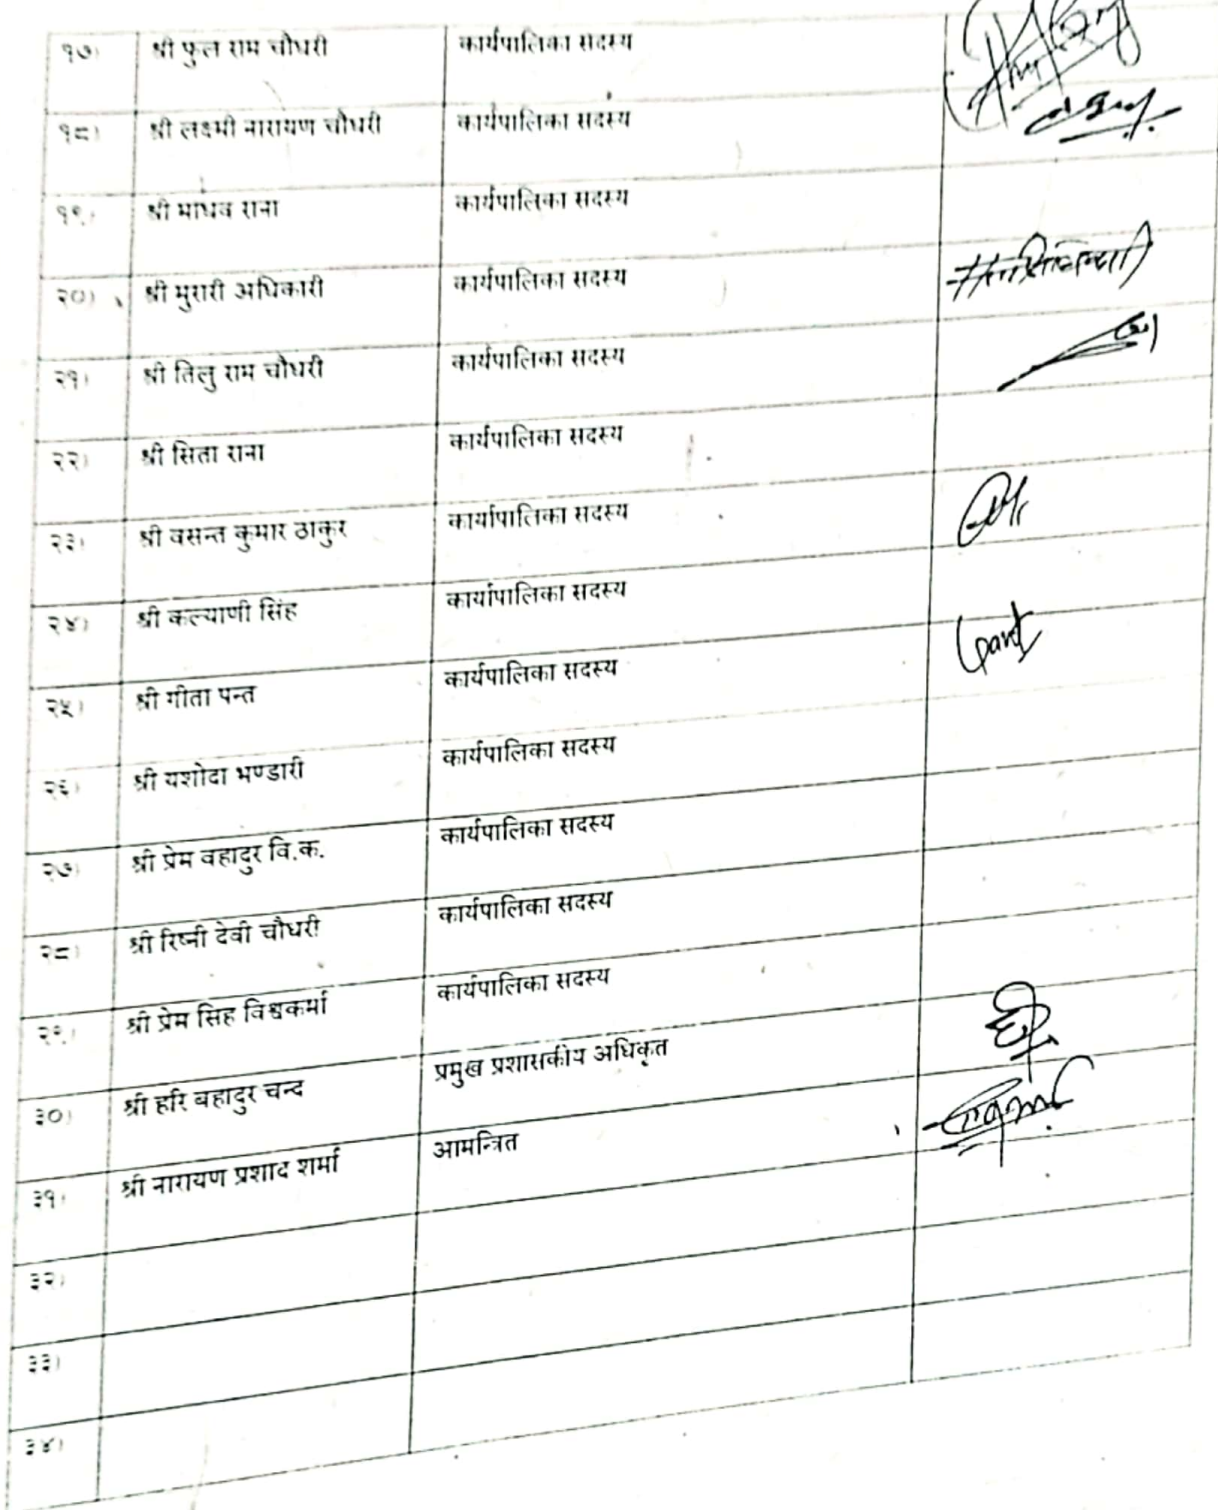 १७) श्री फुल राम चौधरी कार्यपालिका सदस्य
१८) श्री लक्ष्मी नारायण चौधरी कार्यपालिका सदस्य
१९) श्री माधव राना कार्यपालिका सदस्य
२०) श्री मुरारी अधिकारी कार्यपालिका सदस्य
२१) श्री तिलु राम चौधरी कार्यपालिका सदस्य
२२) श्री सिता राना कार्यपालिका सदस्य
२३) श्री वसन्त कुमार ठाकुर कार्यापालिका सदस्य
२४) श्री कल्याणी सिंह कार्यापालिका सदस्य
२५) श्री गीता पन्त कार्यपालिका सदस्य
२६) श्री यशोदा भण्डारी कार्यपालिका सदस्य
२७) श्री प्रेम वहादुर वि.क. कार्यपालिका सदस्य
२८) श्री रिष्नी देवी चौधरी कार्यपालिका सदस्य
२९) श्री प्रेम सिह विश्वकर्मा कार्यपालिका सदस्य
३०) श्री हरि बहादुर चन्द प्रमुख प्रशासकीय अधिकृत
३१) श्री नारायण प्रशाद शर्मा आमन्त्रित
३२)
३३)
३४)